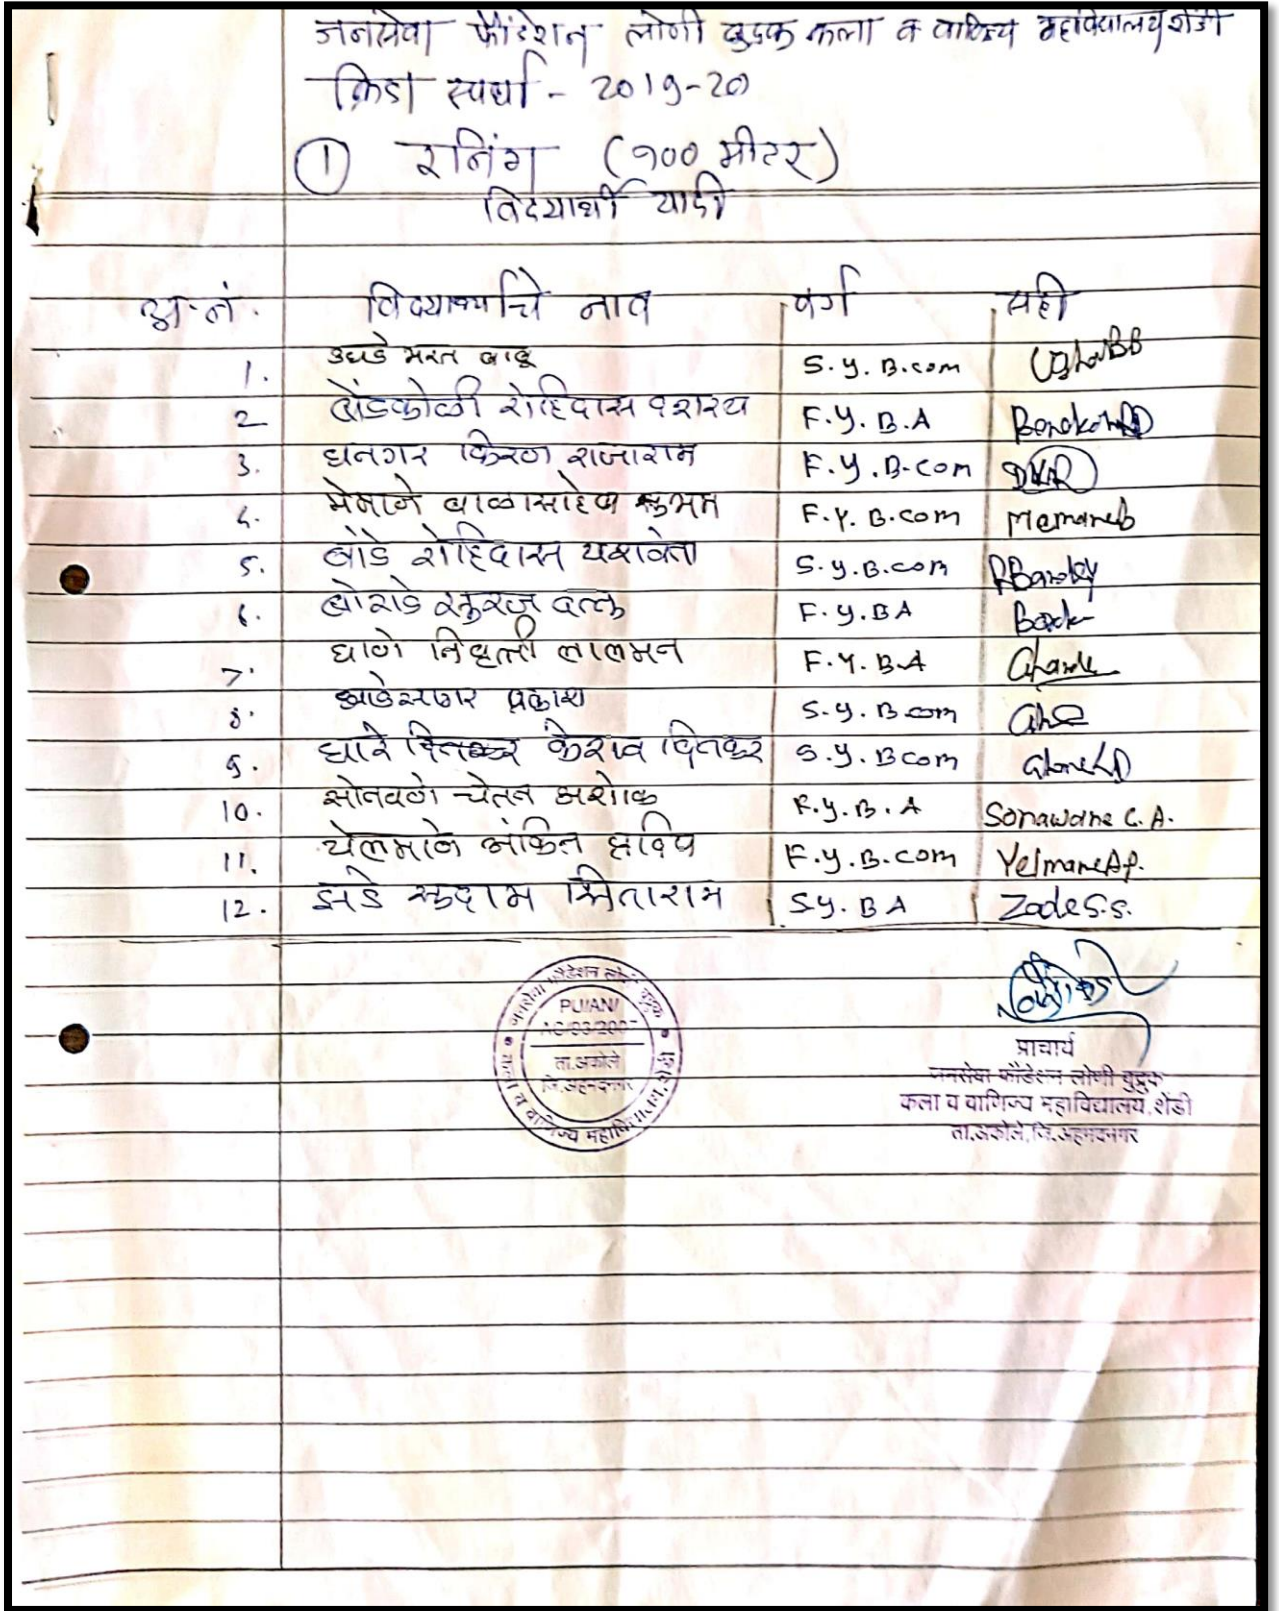 जनसेवा फौंडेशन लोणी बुद्रुक कला व वाणिज्य महाविद्यालय शेंडी
क्रिडा स्पर्धा - 2019-20
① रनिंग (१०० मीटर)
विद्यार्थी यादी
अ.नं. विद्यार्थ्यांचे नाव वर्ग सही
1. उघडे भरत बाबू S.Y.B.com
2 बेंडकोळी रोहिदास दशरथ F.Y.B.A
3. धनगर किरण राजाराम F.Y.B.com
4. मेमाने बाळासाहेब F.Y.B.com Memaneb
5. बांडे रोहिदास यशवंता S.Y.B.com
6. बोराडे सुरज दत्तू F.Y.BA
7. घाणे निवृत्ती लालमन F.Y.B.A
8. सागर प्रकाश S.Y.B.com
9. घारे केशव दिनकर S.Y.Bcom
10. सोनवणे चेतन अशोक F.Y.B.A Sonawane C.A.
11. येलमाने अंकित F.Y.B.com YelmaneAP.
12. झडे सुदाम सिताराम S.Y.BA Zade S.S.
जनसेवा फौंडेशन लोणी बुद्रुक
PU/AN/
ता.अकोले
जि.अहमदनगर
कला व वाणिज्य महाविद्यालय, शेंडी
प्राचार्य
जनसेवा फौंडेशन लोणी बुद्रुक
कला व वाणिज्य महाविद्यालय, शेंडी
ता.अकोले, जि.अहमदनगर